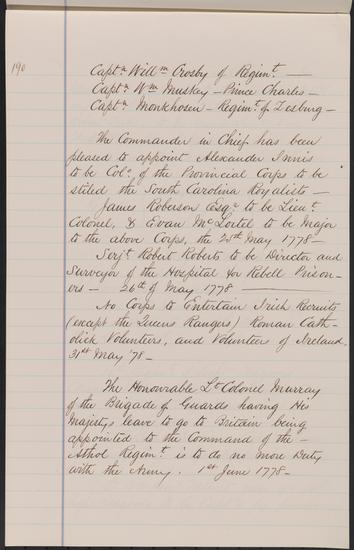 190
Captn Willm Crosby of Regimt. —
Captn Wm Muskey — Prince Charles —
Captn Monkhosen — Regimt of Losburg —
The Commander in Chief has been
pleased to appoint Alexander Innis
to be Colo. of the Provincial Corps to be
stiled the South Carolina Royalists —
James Roberson Esqr. to be Lieut.
Colonel, & Evan McLortel to be Major
to the above Corps, the 20th May 1778 —
Serjt Robert Roberts to be Director and
Surveyor of the Hospital for Rebell Prison-
ers — 26th of May 1778 —
No Corps to Entertain Irish Recruits
(except the Queens Rangers) Roman Cath-
olick Volunteers, and Volunteers of Ireland.
31st May '78 —
The Honourable Lt Colonel Murray
of the Brigade of Guards having His
Majestys leave to go to Britain being
appointed to the Command of the —
Athol Regimt is to do no more Duty
with the Army. 1st June 1778 —